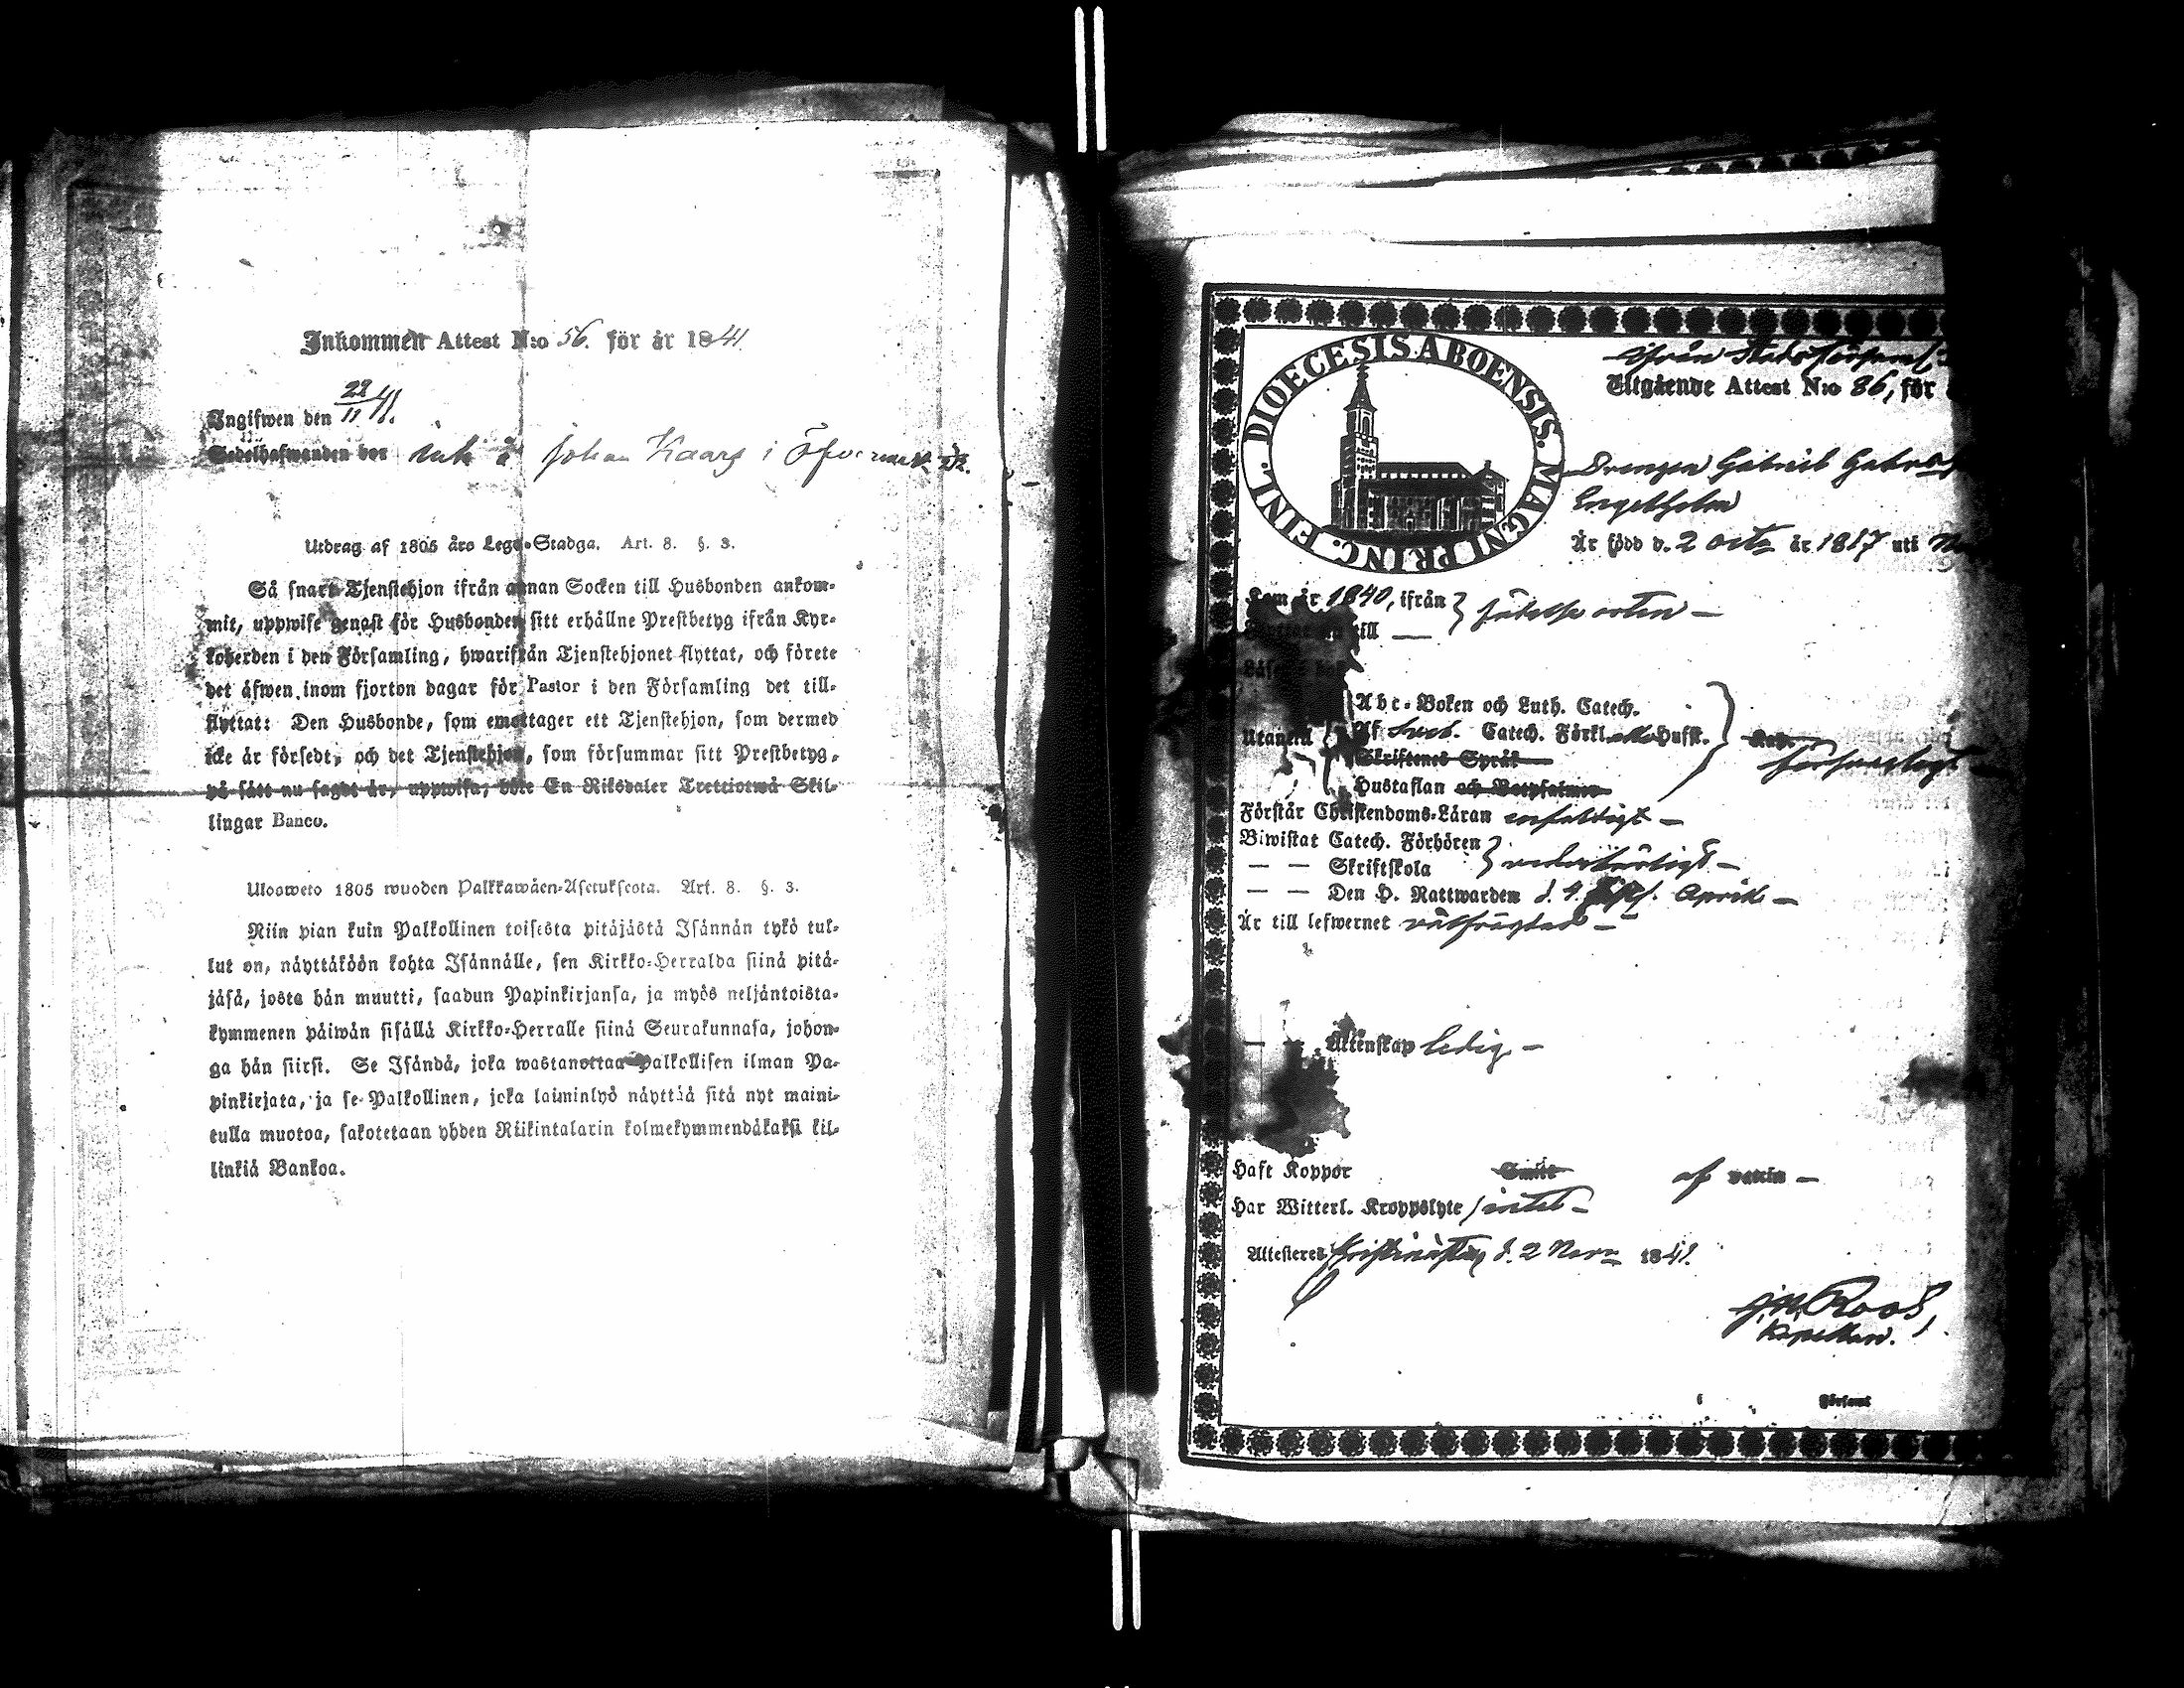 Inkommen Attest N:o 56. för år 1841
Ingifwen den 22/11 41.
Sedelhafwanden bor Johan Kaars i Öfvermark
Utdrag af 1805 års Lego-Stadga. Art. 8. §. 3.
Så snart Tjenstehjon ifrån annan Socken till Husbonden ankom-
mit, uppwise genast för Husbonden sitt erhållne Prestbetyg ifrån Kyr-
koherden i den Församling, hwarifrån Tjenstehjonet flyttat, och förete
det äfwen inom fjorton dagar för Pastor i den Församling det till-
flyttat: Den Husbonde, som emottager ett Tjenstehjon, som dermed
icke är försedt, och det Tjenstehjon, som försummar sitt Prestbetyg,
på sätt nu sagdt är, uppwisa, böte En Riksdaler Trettiotwå Skil-
lingar Banco.
Ulosweto 1805 wuoden Palkkawäen-Asetuksesta. Art. 8. §. 3.
Niin pian kuin Palkollinen toisesta pitäjästä Isännän tykö tul-
lut on, näyttäköön kohta Isännälle, sen Kirkko-Herralda siinä pitä-
jäsä, josta hän muutti, saadun Papinkirjansa, ja myös neljäntoista-
kymmenen päiwän sisällä Kirkko-Herralle siinä Seurakunnasa, johon-
ga hän siirsi. Se Isändä, joka wastanottaa Palkollisen ilman Pa-
pinkirjata, ja se Palkollinen, joka laiminlyö näyttää sitä nyt maini-
tulla muotoa, sakotetaan yhden Riikintalarin kolmekymmendäkaksi kil-
linkiä Bankoa.
DIOECESIS ABOENSIS. MAGNI PRINC. FINL.
ifrån Stads församl:
Utgående Attest N:o 86, för
Drengen Gabriel
Engelholm
Är född d. 2 Octo år 1817 uti
Kom år 1840, ifrån
till —
Läser i bok
Abc-Boken och Luth. Catech.
Utantill Af Sveb. Catech. Förkl. Hufst.
Skriftenes Språk
försvarligt
Hustaflan och Botpsalmer
Förstår Christendoms-Läran enfaldigt —
Biwistat Catech. Förhören
— — Skriftskola
— — Den H. Nattwarden d. 4. April —
Är till lefwernet välfrägdad —
Äktenskap ledig —
Haft Koppor Smitt af vaccin —
Har Witterl. Kroppslyte intet —
Attesteres Kristinestad d. 2 Nov. 1841.
Roos,
Kapellan.
Församl